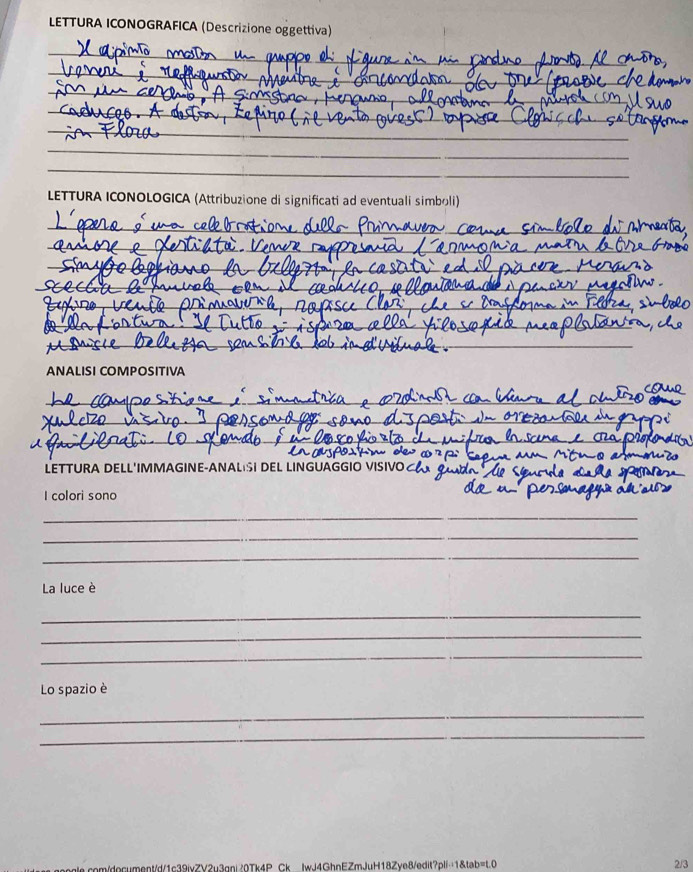 LETTURA ICONOGRAFICA (Descrizione oggettiva)
Il dipinto mostra un gruppo di figure in un giardino fiorito. Al centro,
Venere è raffigurata mentre è circondata da tre Grazie che danzano
in un cerchio. A sinistra, Mercurio, allontana le nuvole con il suo
caduceo. A destra, Zefiro (il vento ovest) rapisce Clori che si trasforma
in Flora
LETTURA ICONOLOGICA (Attribuzione di significati ad eventuali simboli)
L'opera è una celebrazione della Primavera come simbolo di rinascita,
amore e fertilità. Venere rappresenta l'armonia mentre le tre Grazie
simboleggiano la bellezza, la castità ed il piacere. Mercurio
scaccia le nuvole con il caduceo, allontanando i pensieri negativi.
Zefiro, vento primaverile, rapisce Clori, che si trasforma in Flora, simbolo
della fioritura. Il tutto si ispira alla filosofia neoplatonica, che
unisce bellezza sensibile ed individuale.
ANALISI COMPOSITIVA
La composizione è simmetrica e ordinata con Venere al centro come
fulcro visivo. I personaggi sono disposti in orizzontale in gruppi
equilibrati. Lo sfondo è un bosco fiorito che unifica la scena e crea profondità
La disposizione dei corpi segue un ritmo armonico
LETTURA DELL'IMMAGINE-ANALISI DEL LINGUAGGIO VISIVO che guida lo sguardo dello spettatore
da un personaggio all'altro
I colori sono
La luce è
Lo spazio è
2/3